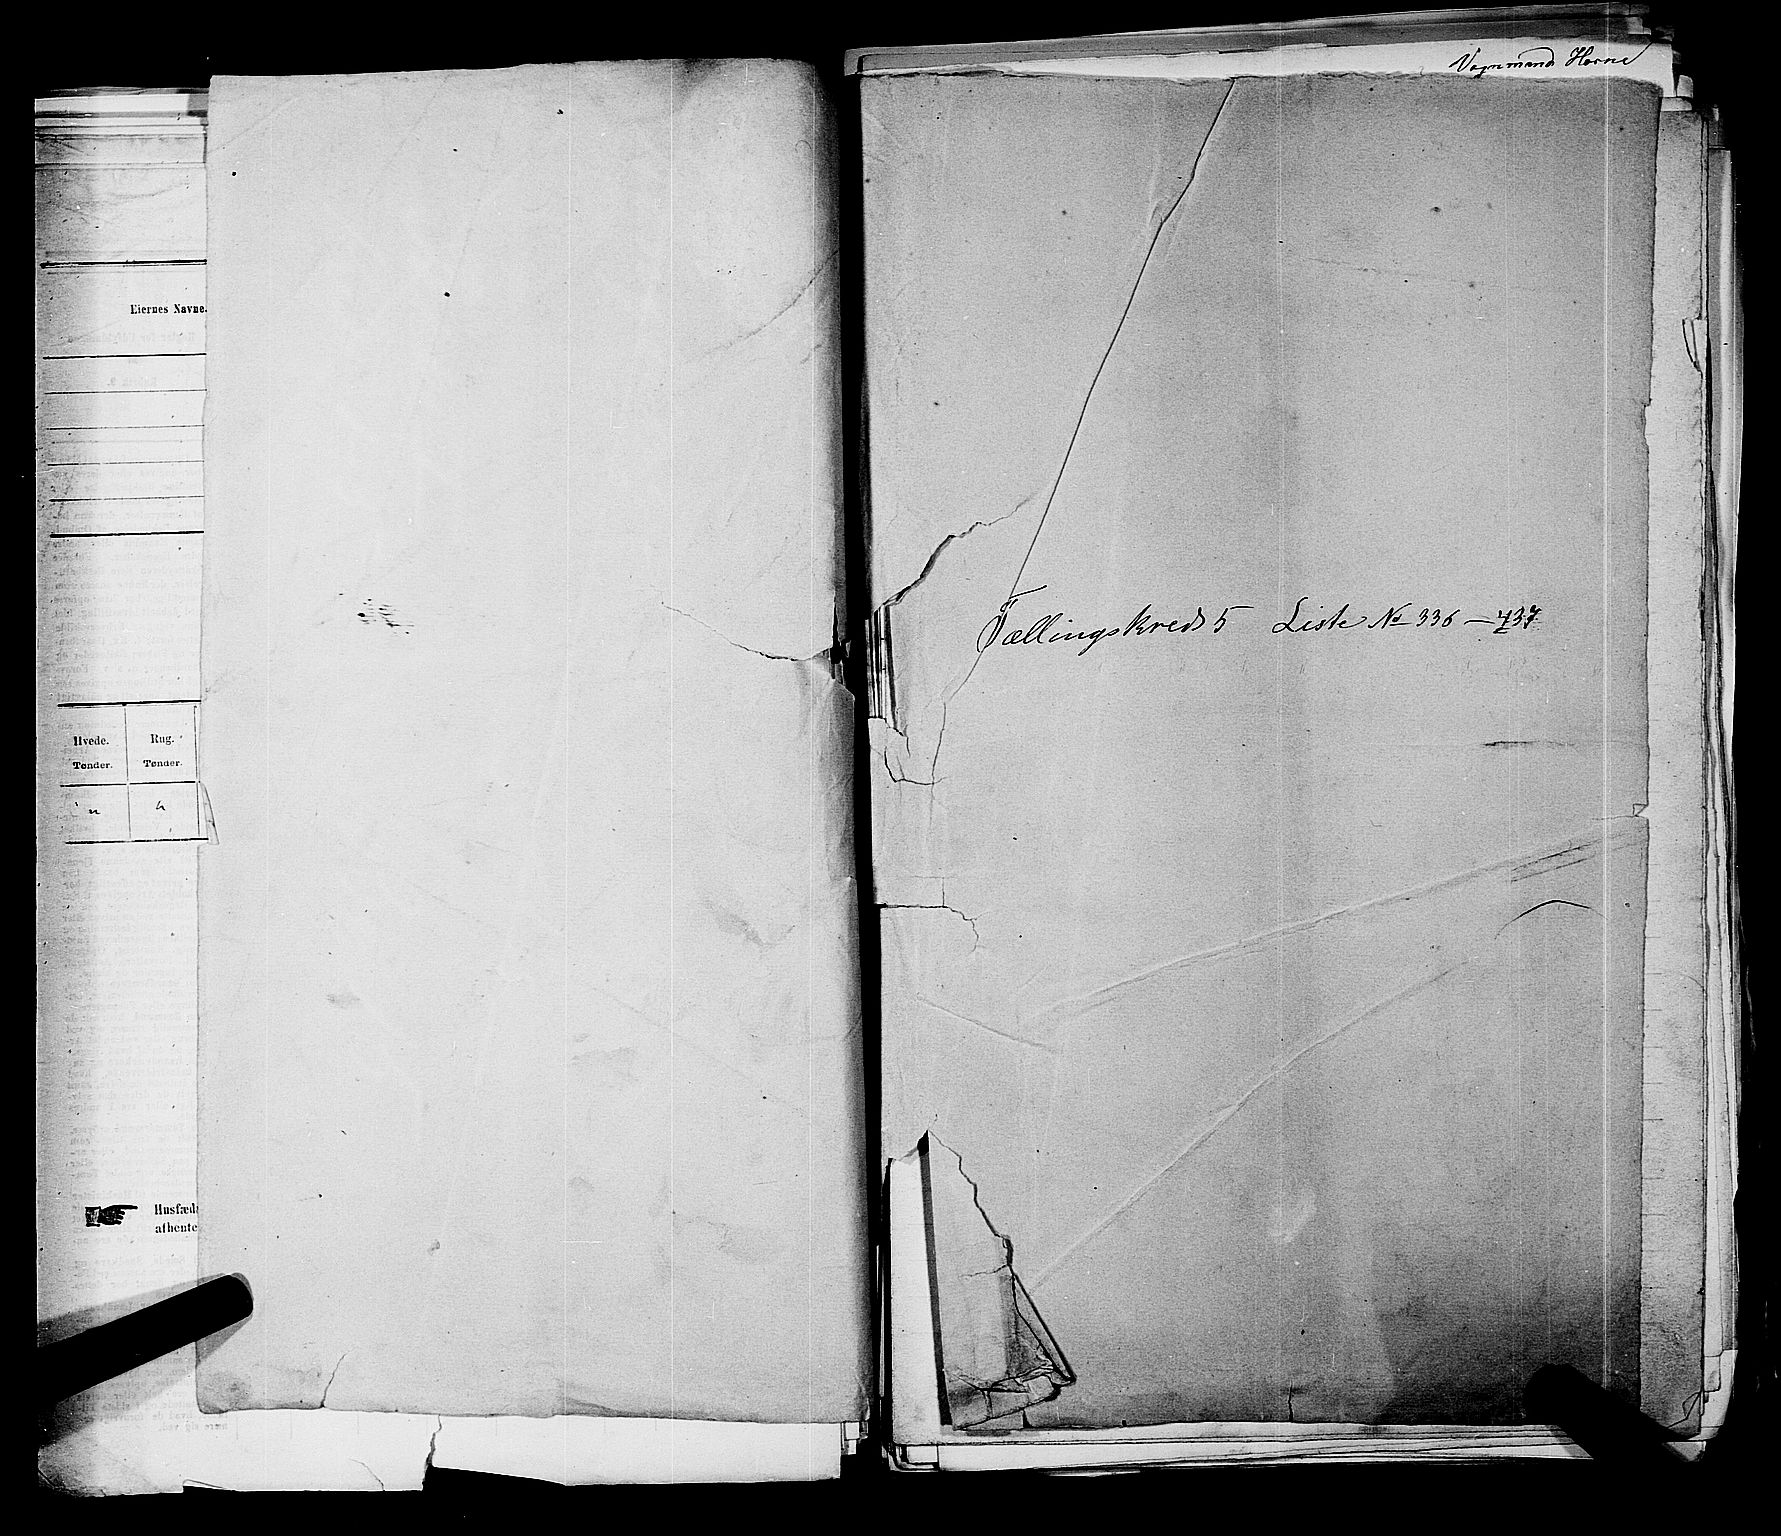 Eiernes Navne.
Hvede. Rug.
Tønder. Tønder.
" "
Husfæd
afhente
Vognmand Horne
Tællingskreds 5 Liste No 336 — 437